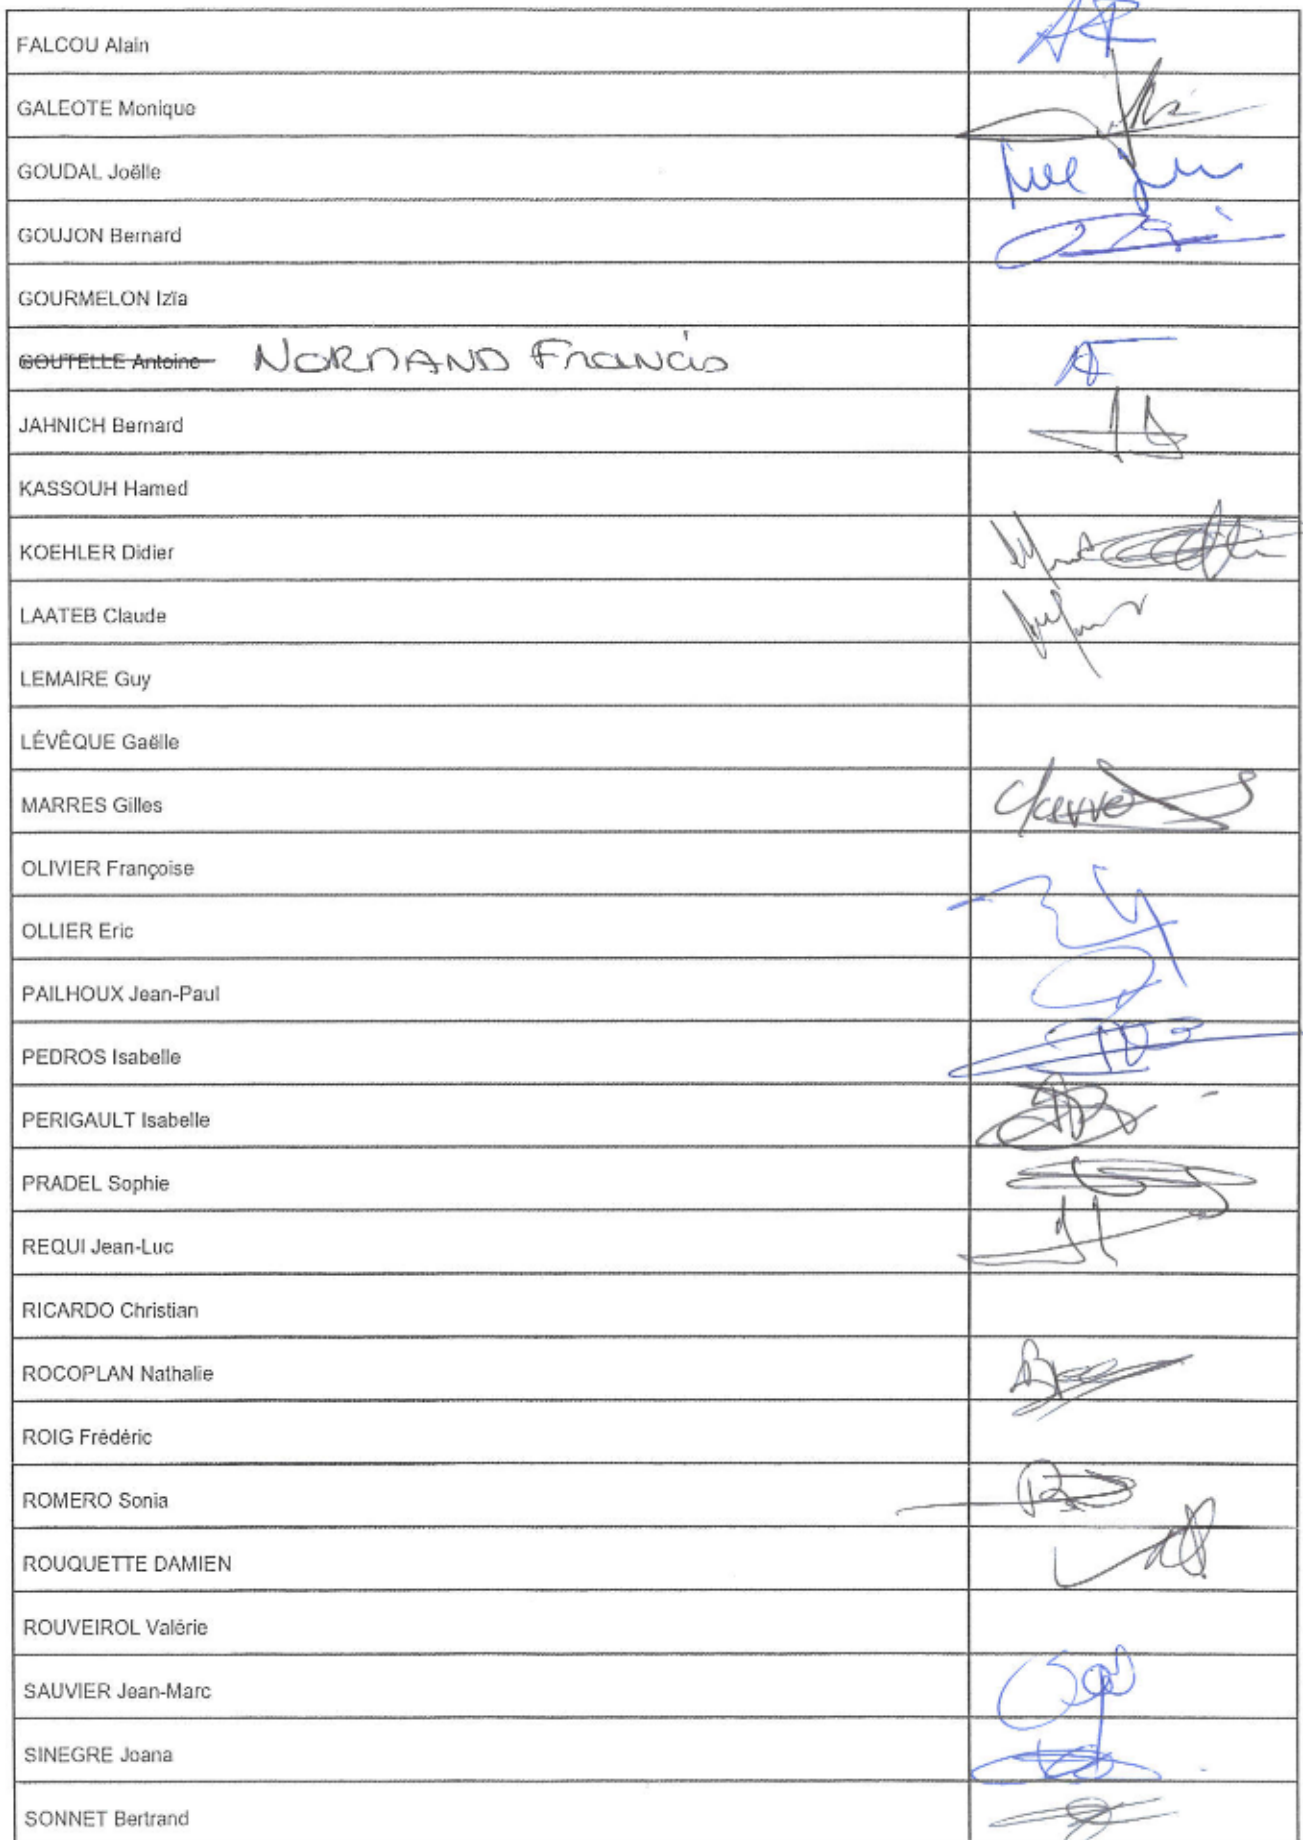 FALCOU Alain
GALEOTE Monique
GOUDAL Joëlle
GOUJON Bernard
GOURMELON Izïa
GOUTELLE Antoine NORMAND Francis
JAHNICH Bernard
KASSOUH Hamed
KOEHLER Didier
LAATEB Claude
LEMAIRE Guy
LÉVÊQUE Gaëlle
MARRES Gilles
OLIVIER Françoise
OLLIER Eric
PAILHOUX Jean-Paul
PEDROS Isabelle
PERIGAULT Isabelle
PRADEL Sophie
REQUI Jean-Luc
RICARDO Christian
ROCOPLAN Nathalie
ROIG Frédéric
ROMERO Sonia
ROUQUETTE DAMIEN
ROUVEIROL Valérie
SAUVIER Jean-Marc
SINEGRE Joana
SONNET Bertrand